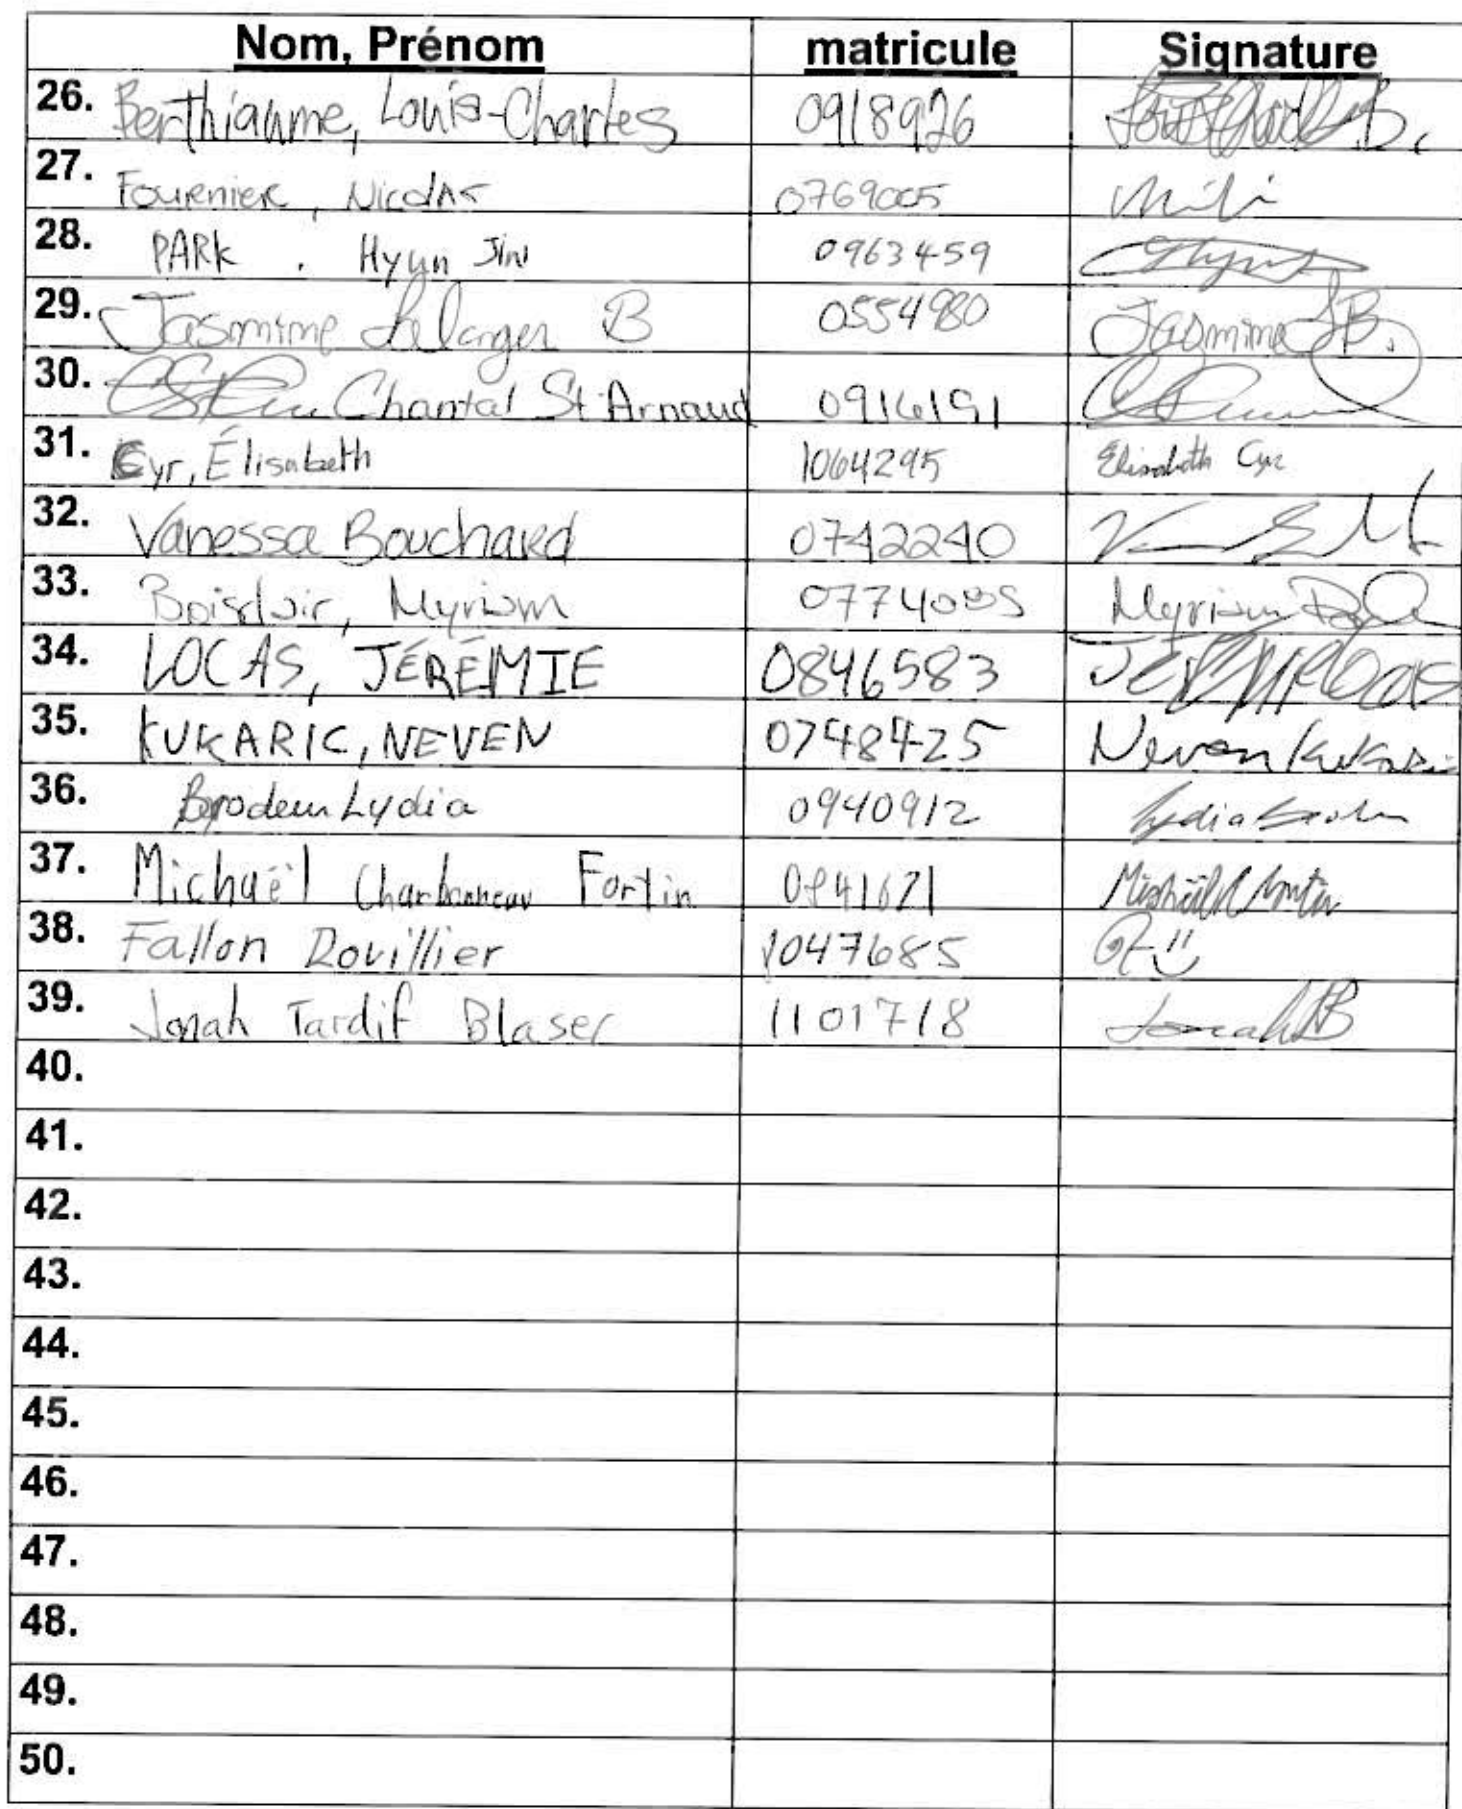 Nom, Prénom matricule Signature
26. Berthiaume, Louis-Charles 0918926
27. Fournier, Nicolas 0769005
28. PARK. Hyun Jin 0963459
29. Jasmine B 0554980 Jasmine LB.
30. Chantal St Arnaud 0916191
31. Cyr, Élisabeth 1064295 Elisabeth Cyr
32. Vanessa Bouchard 0742240
33. Boisclair, Myriam Myriam
34. LOCAS, JÉRÉMIE 0846583
35. KUKARIC, NEVEN 0748425 Neven Kukaric
36. Brodeur Lydia 0940912 Lydia
37. Michaël Charbonneau Fortin
38. Fallon Rovillier 1047685
39. Jonah Tardif Blaser 1101718 Jonah TB
40.
41.
42.
43.
44.
45.
46.
47.
48.
49.
50.